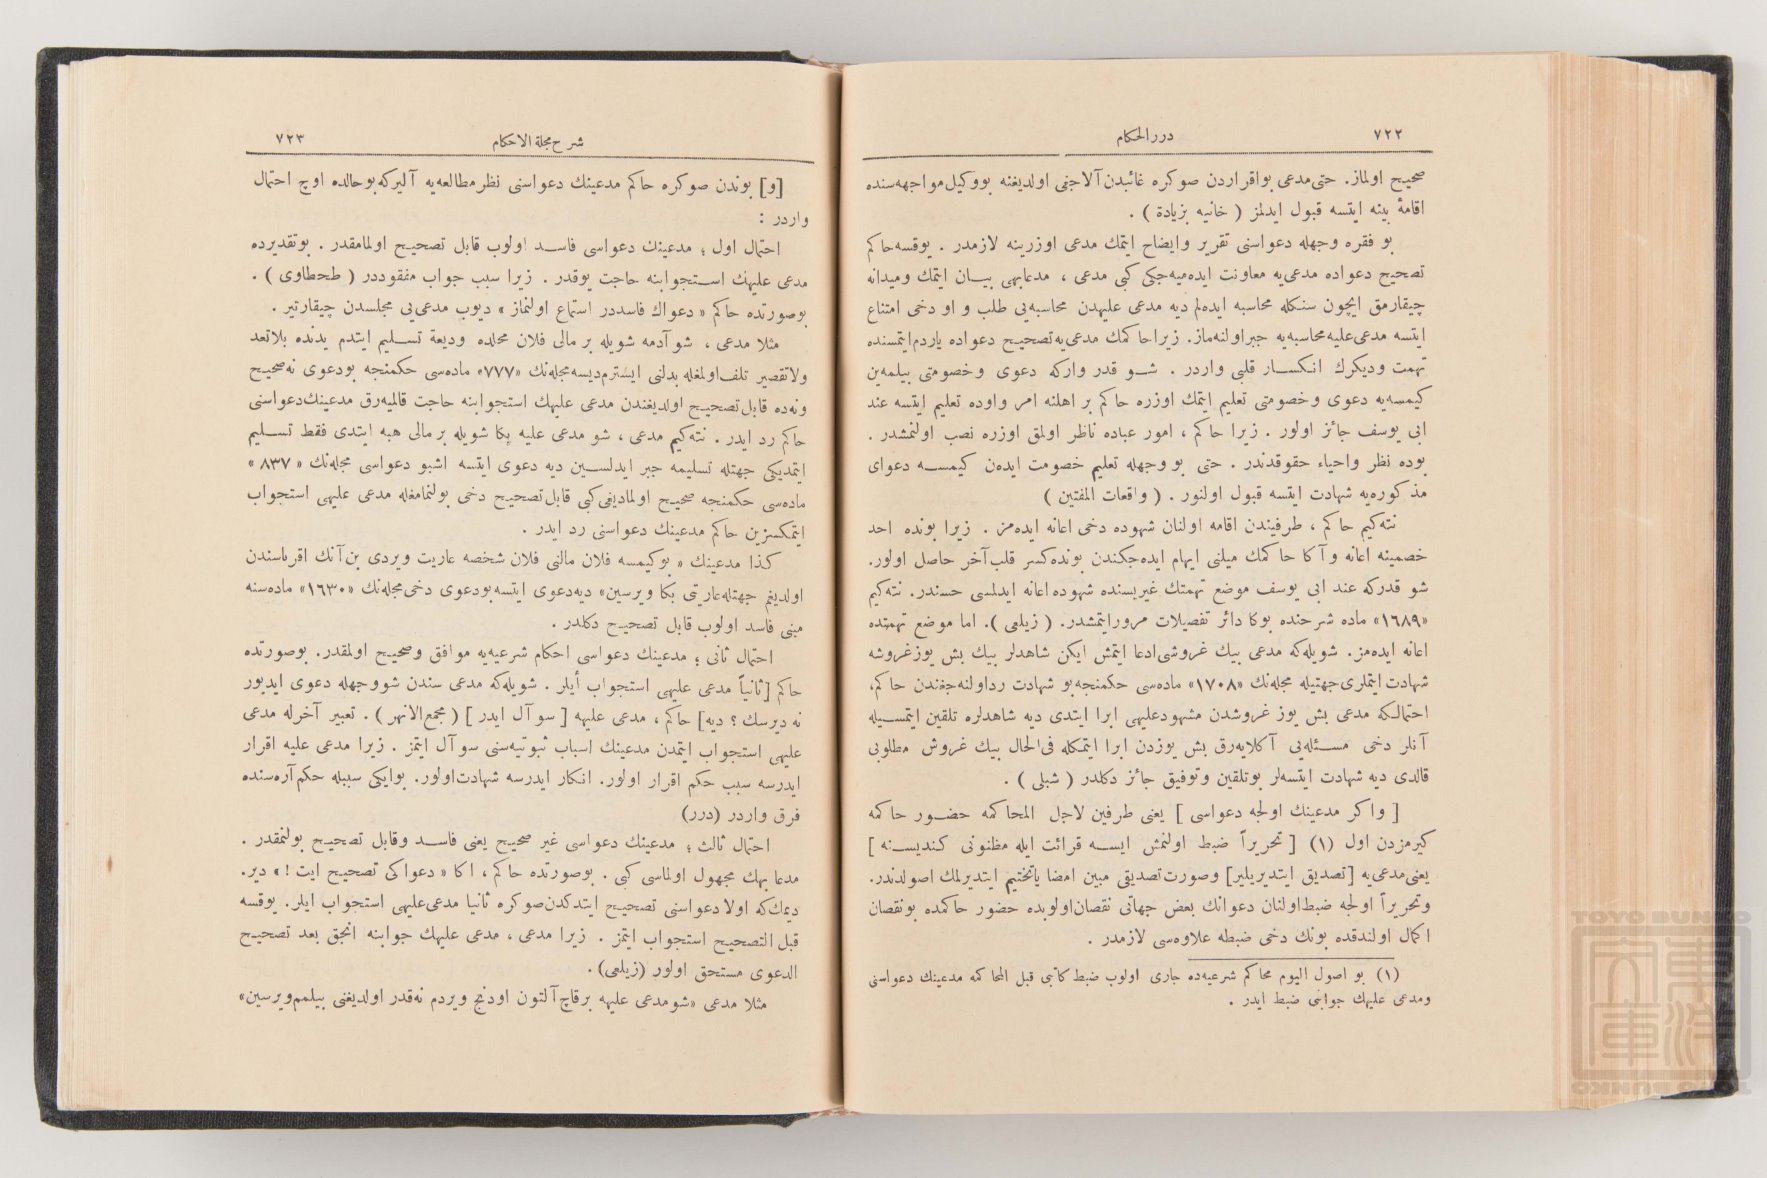 ٧٢٢
درر الحكام
صحيح اولماز. حتى مدعى بواقراردن صوكره غائبدن آلاجغى اولديغنه بووكيل مواجهه‌سنده
اقامهٔ بينه ايتسه قبول ايدلمز ( خانيه بزيادة ) .
بو فقره وجهله دعواسنى تقرير وايضاح ايتمك مدعى اوزرينه لازمدر . يوقسه حاكم
تصحيح دعواده مدعى‌يه معاونت ايده‌ميه‌جكى كبى مدعى ، مدعابهى بيان ايتمك وميدانه
چيقارمق ايچون سنكله محاسبه ايده‌لم ديه مدعى عليهدن محاسبه‌يى طلب و او دخى امتناع
ايتسه مدعى عليه محاسبه‌يه جبر اولنه‌ماز. زيرا حاكمك مدعى‌يه تصحيح دعواده ياردم ايتمسنده
تهمت وديكرك انكسار قلبى واردر . شو قدر واركه دعوى وخصومتى بيلمه‌ين
كيمسه‌يه دعوى وخصومتى تعليم ايتمك اوزره حاكم بر اهلنه امر واوده تعليم ايتسه عند
ابى يوسف جائز اولور . زيرا حاكم ، امور عباده ناظر اولمق اوزره نصب اولنمشدر .
بوده نظر واحياء حقوقدندر . حتى بو وجهله تعليم خصومت ايده‌ن كيمسه دعواى
مذكوره‌يه شهادت ايتسه قبول اولنور . ( واقعات المفتين )
نته‌كيم حاكم ، طرفيندن اقامه اولنان شهوده دخى اعانه ايده‌مز . زيرا بونده احد
خصمينه اعانه و آكا حاكمك ميلنى ايهام ايده‌جكندن بونده كسر قلب آخر حاصل اولور.
شو قدركه عند ابى يوسف موضع تهمتك غيريسنده شهوده اعانه ايدلمسى حسندر. نته‌كيم
«١٦٨٩» ماده شرحنده بوكا دائر تفصيلات مرورايتمشدر. ( زيلعى ). اما موضع تهمتده
اعانه ايده‌مز. شويله‌كه مدعى بيك غروشى ادعا ايتمش ايكن شاهدلر بيك بش يوزغروشه
شهادت ايتملرى جهتيله مجله‌نك «١٧٠٨» ماده‌سى حكمنجه بو شهادت رد اولنه‌جغندن حاكم،
احتمالكه مدعى بش يوز غروشدن مشهودعليهى ابرا ايتدى ديه شاهدلره تلقين ايتمسيله
آنلر دخى مسئله‌يى آكلايه‌رق بش يوزدن ابرا ايتمكله فى‌الحال بيك غروش مطلوبى
قالدى ديه شهادت ايتسه‌لر بوتلقين وتوفيق جائز دكلدر ( شبلى ) .
[ واكر مدعينك اولجه دعواسى ] يعنى طرفين لاجل المحاكمه حضور حاكمه
كيرمزدن اول (١) [ تحريراً ضبط اولنمش ايسه قرائت ايله مظنونى كنديسنه ]
يعنى مدعى‌يه [تصديق ايتديريلير] وصورت تصديقى مبين امضا ياتختيم ايتديرلمك اصولدندر.
وتحريراً اولجه ضبط اولنان دعوانك بعض جهاتى نقصان اولوبده حضور حاكمده بونقصان
اكمال اولندقده بونك دخى ضبطه علاوه‌سى لازمدر .
(١) بو اصول اليوم محاكم شرعيه‌ده جارى اولوب ضبط كاتبى قبل المحاكمه مدعينك دعواسنى
ومدعى عليهك جوابنى ضبط ايدر .
شرح مجلة الاحكام
٧٢٣
[و] بوندن صوكره حاكم مدعينك دعواسنى نظر مطالعه‌يه آليركه بوحالده اوچ احتمال
واردر :
احتمال اول ؛ مدعينك دعواسى فاسد اولوب قابل تصحيح اولمامقدر . بوتقديرده
مدعى عليهك استجوابنه حاجت يوقدر . زيرا سبب جواب مفقوددر ( طحطاوى ) .
بوصورتده حاكم « دعواك فاسددر استماع اولنماز » ديوب مدعى‌يى مجلسدن چيقارتير .
مثلا مدعى ، شو آدمه شويله بر مالى فلان محلده وديعة تسليم ايتدم يدنده بلاتعد
ولاتقصير تلف‌اولمغله بدلنى ايسترم ديسه مجله‌نك «٧٧٧» ماده‌سى حكمنجه بودعوى نه‌صحيح
ونه‌ده قابل تصحيح اولديغندن مدعى عليهك استجوابنه حاجت قالميه‌رق مدعينك دعواسنى
حاكم رد ايدر . نته‌كيم مدعى ، شو مدعى عليه بكا شويله بر مالى هبه ايتدى فقط تسليم
ايتمديكى جهتله تسليمه جبر ايدلسين ديه دعوى ايتسه اشبو دعواسى مجله‌نك « ٨٣٧ »
ماده‌سى حكمنجه صحيح اولماديغى كبى قابل تصحيح دخى بولنمامغله مدعى عليهى استجواب
ايتمكسزين حاكم مدعينك دعواسنى رد ايدر .
كذا مدعينك « بوكيمسه فلان مالنى فلان شخصه عاريت ويردى بن آنك اقرباسندن
اولديغم جهتله عاريتى بكا ويرسين» ديه دعوى ايتسه بودعوى دخى مجله‌نك «١٦٣٠» ماده‌سنه
مبنى فاسد اولوب قابل تصحيح دكلدر .
احتمال ثانى ؛ مدعينك دعواسى احكام شرعيه‌يه موافق وصحيح اولمقدر. بوصورتده
حاكم [ثانياً مدعى عليهى استجواب أيلر . شويله‌كه مدعى سندن شووجهله دعوى ايديور
نه ديرسك ؟ ديه] حاكم ، مدعى عليهه [ سوآل ايدر ] ( مجمع‌الانهر ) . تعبير آخرله مدعى
عليهى استجواب ايتمدن مدعينك اسباب ثبوتيه‌سنى سوآل ايتمز . زيرا مدعى عليه اقرار
ايدرسه سبب حكم اقرار اولور. انكار ايدرسه شهادت‌اولور. بوايكى سببله حكم آره‌سنده
فرق واردر (درر)
احتمال ثالث ؛ مدعينك دعواسى غير صحيح يعنى فاسد وقابل تصحيح بولنمقدر .
مدعابهك مجهول اولماسى كبى . بوصورتده حاكم ، اكا « دعواكى تصحيح ايت ! » دير.
ديمك‌كه اولا دعواسنى تصحيح ايتدكدن صوكره ثانيا مدعى‌عليهى استجواب ايلر. يوقسه
قبل التصحيح استجواب ايتمز . زيرا مدعى ، مدعى عليهك جوابنه انجق بعد تصحيح
الدعوى مستحق اولور (زيلعى).
مثلا مدعى «شومدعى عليهه برقاچ آلتون اودنج ويردم نه‌قدر اولديغنى بيلمم ويرسين»
TOYO BUNKO